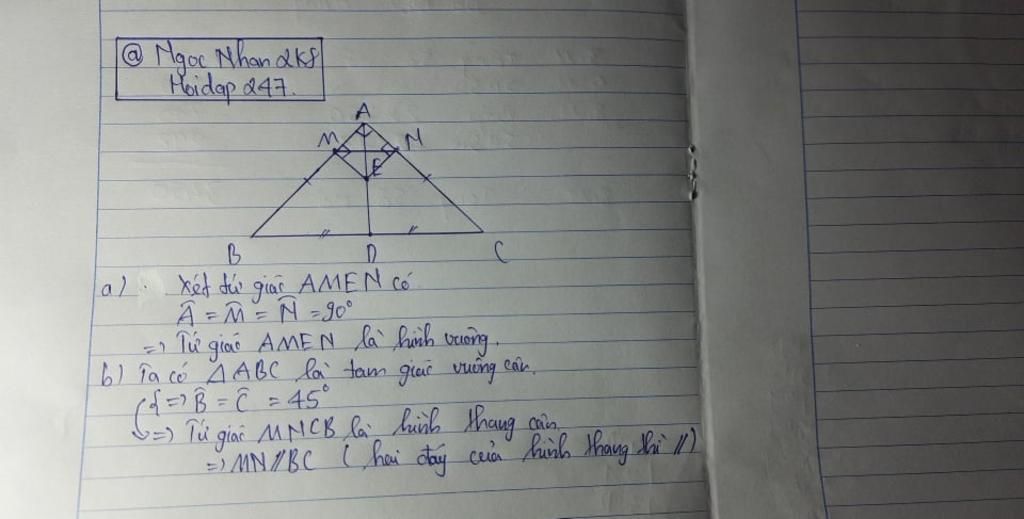 @ Ngoc Nhan 2K8
Hoidap 247.
A
M N
E
B D C
a) Xét tứ giác AMEN có
Â = M̂ = N̂ = 90°
=> Tứ giác AMEN là hình vuông.
b) Ta có △ABC là tam giác vuông cân.
{=> B̂ = Ĉ = 45°
=> Tứ giác MNCB là hình thang cân.
=> MN//BC (hai đáy của hình thang thì //)